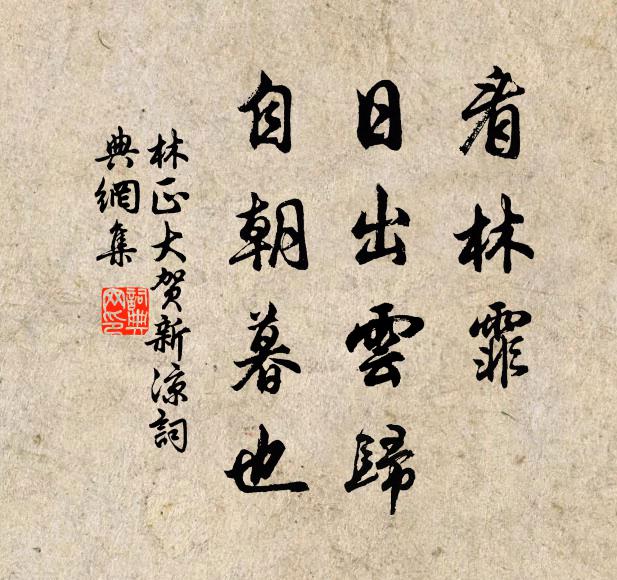 看林霏
日出雲歸
自朝暮也
林正大賀新涼詞
典網集
詞典
网印